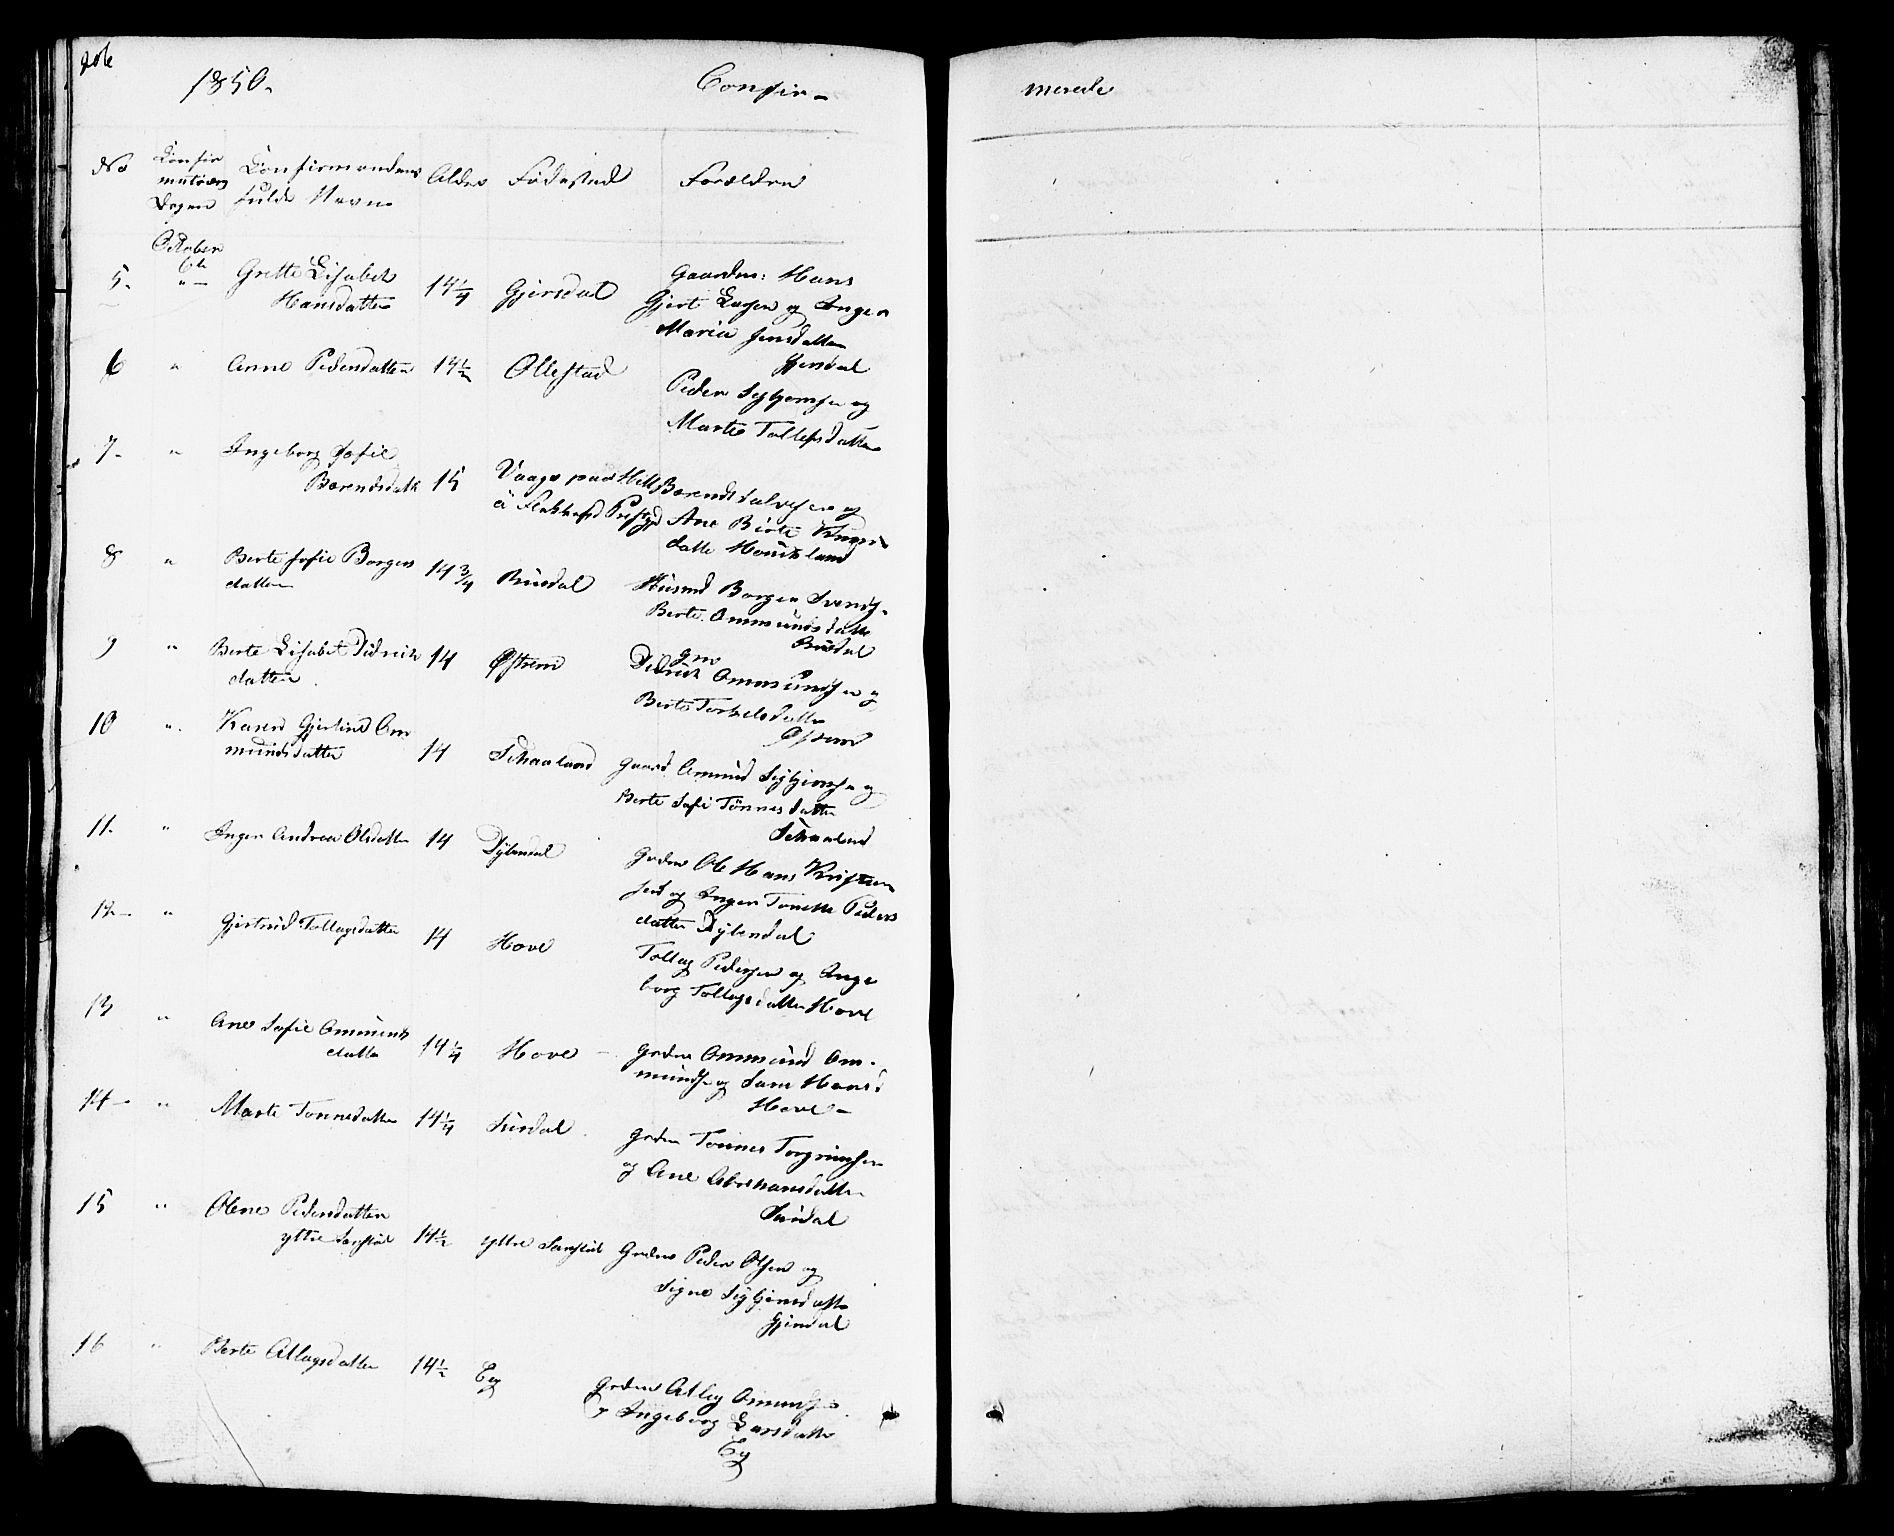 1850.
Confir-
merede
No
Confir
mations
Dagen
Confirmandens
fulde Navn
Alder
Fødested
Forældre
October
6te
5. " Grette Lisabet 14¼ Gjersdal Gaardm: Hans
Hansdatter Gjert Larsen og Inger
Maria Jensdatter
Gjersdal
6 " Anne Pedersdatter 14½ Ollestad Peder Sigbjørnsen og
Marte Tollefsdatter
7. " Ingeborg Sofie
Barendsdatt 15 Vaage paa Barendt Salvesen og
Ane Birte
datter
8 " Berte Sofie Borgers 14¾ Ruusdal Huusmd Borger Svends.
datter Berte Ommundsdatter
Ruusdal
9 " Berte Lisabet Didrich 14 Østrem gm
datter Didrich Ommundsen og
Berte Torkelsdatter
Østrem
10 " Karen Gjertine Om
mundsdatter 14 Schaaland Gaard Omund Sigbjørnsen og
Berte Sofie Tønnesdatter
Schaaland
11. " Inger Andrea Olsdatter 14 Dybendal Grdm Ole Hans Kristen
sen og Inger Tonette Peders
datter Dybendal
12 " Gjertrud Tollagsdatter 14 Hove Tollag Pedersen og Inge
borg Tollagsdatter Hove
13 " Ane Sofie Ommunds
datter 14¼ Hove - Grdm Ommund Om-
munds og Sara Hansd
Hove -
14 " Marte Tonnesdatter 14¼ Suusdal Grdm Tonnes Torgrimsen
og Ane Abrahamsdatter
Suusdal
15 " Olene Pedersdatter
yttre 14½ yttre Grdm Peder Olsen og
Signe Sigbjørnsdatter
Gjersdal
16 " Berte Atlagsdatter 14½ Eg Grdm Atlag Omunds
og Ingeborg Larsdatter
Eg